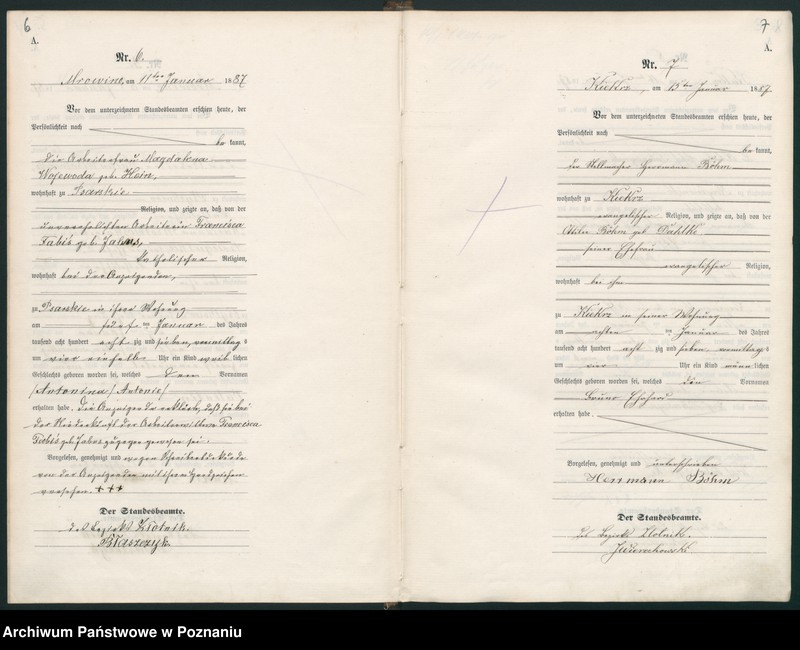 6
A.
Nr. 6.
Mrowino, am 11ten Januar 1887
Vor dem unterzeichneten Standesbeamten erschien heute, der
Persönlichkeit nach
be kannt,
die Arbeiterfrau Magdalena
Wojewoda geb. Hein,
wohnhaft zu
Religion, und zeigte an, daß von der
unverehelichten Arbeiterin Francisca
katholischer Religion,
wohnhaft bei der Anzeigenden,
zu in ihrer Wohnung
am ten Januar des Jahres
tausend acht hundert acht zig und sieben, vormittag s
um vier einhalb Uhr ein Kind weib lichen
Geschlechts geboren worden sei, welches Vornamen
/Antonina/ Antonie/
erhalten habe. Die Anzeigende erklärte, daß sie bei
der Niederkunft der Francisca
geb. zugegen gewesen sei.
Vorgelesen, genehmigt und wegen Schreibensunkunde
von der Anzeigenden mit ihrem Handzeichen
versehen +++
Der Standesbeamte.
des Bezirks Zlotnik.
Blaszczyk.
7
A.
Nr. 7
Kiekrz, am 15ten Januar 1887
Vor dem unterzeichneten Standesbeamten erschien heute, der
Persönlichkeit nach
be kannt,
der Stellmacher Herrmann Böhm
wohnhaft zu Kiekrz
evangelischer Religion, und zeigte an, daß von der
Böhm geb. Dahlke
seiner Ehefrau
evangelischer Religion,
wohnhaft bei ihm
zu Kiekrz in seiner Wohnung
am achten ten Januar des Jahres
tausend acht hundert acht zig und sieben, vormittag s
um vier Uhr ein Kind männ lichen
Geschlechts geboren worden sei, welches den Vornamen
Bruno
erhalten habe.
Vorgelesen, genehmigt und unterschrieben
Herrmann Böhm
Der Standesbeamte.
des Bezirks Zlotnik.
Archiwum Państwowe w Poznaniu